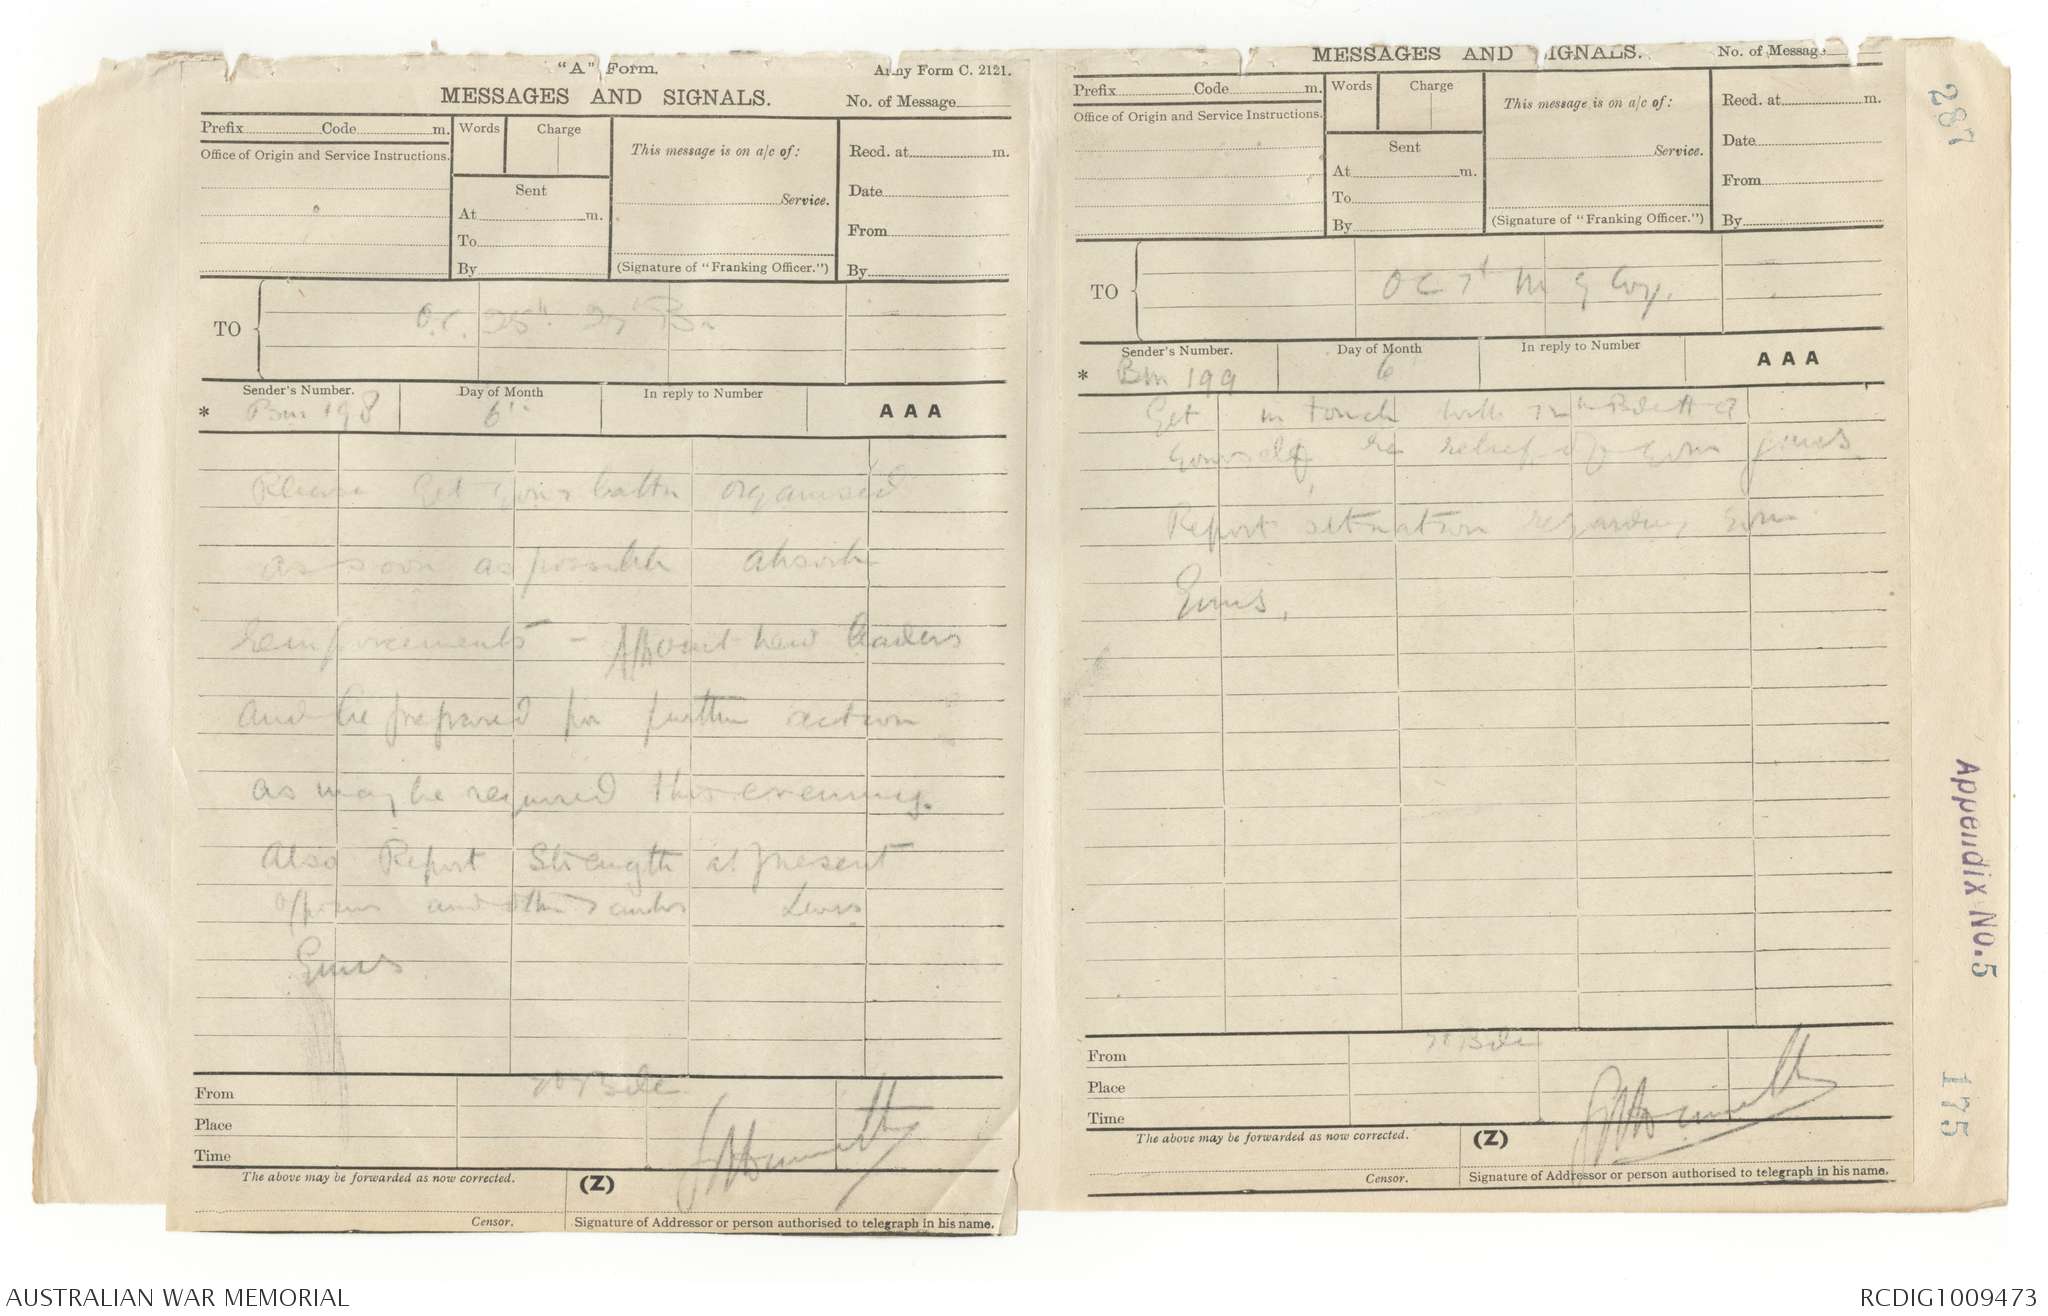 "A" Form.
Army Form C. 2121.
MESSAGES AND SIGNALS.
No. of Message
Prefix Code m.
Words Charge
This message is on a/c of:
Recd. at m.
Office of Origin and Service Instructions.
Sent
Date
Service.
At m.
From
To
By
(Signature of "Franking Officer.")
By
TO
O.C.
Sender's Number.
Day of Month
In reply to Number
AAA
* Bm 198
6th
Please get your battn organised
as soon as possible absorb
reinforcements - Appoint new leaders
and be prepared for further action
as may be required this evening.
Also Report Strength at present
Officers and other ranks Lewis
Guns
From
Place
Time
The above may be forwarded as now corrected.
(Z)
Censor.
Signature of Addressor or person authorised to telegraph in his name.
MESSAGES AND SIGNALS.
No. of Message
Prefix Code m.
Words Charge
This message is on a/c of:
Recd. at m.
Office of Origin and Service Instructions.
Sent
Date
Service.
At m.
From
To
By
(Signature of "Franking Officer.")
By
TO
O C 7th M G Coy.
Sender's Number.
Day of Month
In reply to Number
AAA
* Bm 199
6
Get in touch with
yourself re relief of your guns.
Report situation regarding your
Guns.
From
Place
Time
The above may be forwarded as now corrected.
(Z)
Censor.
Signature of Addressor or person authorised to telegraph in his name.
287
Appendix No. 5
175
AUSTRALIAN WAR MEMORIAL
RCDIG1009473